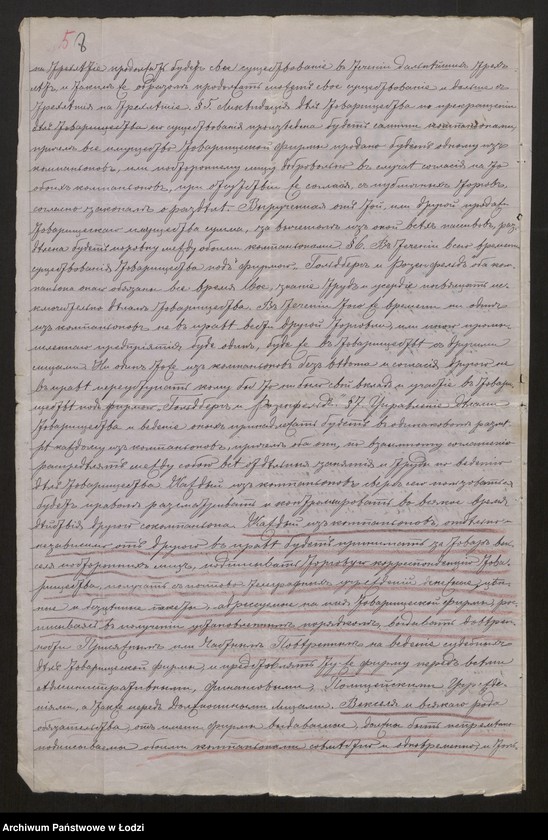 5 8
на трехлѣтіе продолжать будетъ свое существованіе въ теченіи дальнѣйшихъ трехъ
лѣтъ и такимъ же образомъ продолжать можетъ свое существованіе и дальше съ
трехлѣтія на трехлѣтіе. §5. Ликвидація дѣлъ Товарищества по прекращеніи
его существованія произведена будетъ самими компаніонами,
причемъ все имущество Товарищеской фирмы продано будетъ одному изъ
компаніоновъ, или постороннему лицу добровольно въ случаѣ согласія на то
обоихъ компаніоновъ, при отсутствіи же согласія съ публичныхъ торговъ,
согласно законамъ о раздѣлѣ. Вырученная отъ той, или другой продажи
Товарищескаго имущества сумма, за вычетомъ изъ оной всѣхъ пассивовъ, раз-
дѣлена будетъ поровну между обоими компаніонами. §6. Въ теченіи всего времени
существованія Товарищества подъ фирмою "Гольдбергъ и Розенфельдъ" оба ком-
паніона они обязаны все время свое, знаніе, трудъ и усердіе посвящать ис-
ключительно дѣламъ Товарищества. Въ теченіи того же времени ни одинъ
изъ компаніоновъ не въ правѣ вести другой торговли, или иного промы-
шленнаго предпріятія, буде одинъ, буде же въ товариществѣ съ другими
лицами. Ни одинъ тоже изъ компаніоновъ безъ вѣдома и согласія другого не
въ правѣ переуступать кому бы то ни было свой вкладъ и участіе въ Товари-
ществѣ подъ фирмою "Гольдбергъ и Розенфельдъ". §7. Управленіе дѣлами
Товарищества и веденіе оныхъ принадлежать будетъ въ одинаковомъ размѣ-
рѣ каждому изъ компаніоновъ, причемъ они, по взаимному соглашенію
распредѣлятъ между собою всѣ отдѣльныя занятія и труды по веденію
дѣлъ Товарищества. Каждый изъ компаніоновъ сверхъ сего пользоваться
будетъ правомъ разсматривать и контролировать во всякое время
дѣйствія другого сокомпаніона. Каждый изъ компаніоновъ, отдѣльно и
независимо отъ другого въ правѣ будетъ принимать за товаръ век-
селя постороннихъ лицъ, подписывать торговую корреспонденцію Това-
рищества, получать съ почтово-телеграфныхъ учрежденій денежные, цѣн-
ные и посылочные пакеты, адресуемые на имя Товарищеской фирмы, рос-
писываясь въ полученіи установленнымъ порядкомъ, выдавать довѣрен-
ности Присяжнымъ или Частнымъ Повѣреннымъ на веденіе судебныхъ
дѣлъ Товарищеской фирмы, и представлять ту же фирму передъ всѣми
административными, финансовыми, Полицейскими Учрежде-
ніями, а также передъ Должностными лицами. Векселя и всякаго рода
обязательства, отъ имени фирмы выдаваемые, должны быть непремѣнно
подписываемы обоими компаніонами совмѣстно и одновременно, и толь-
Archiwum Państwowe w Łodzi